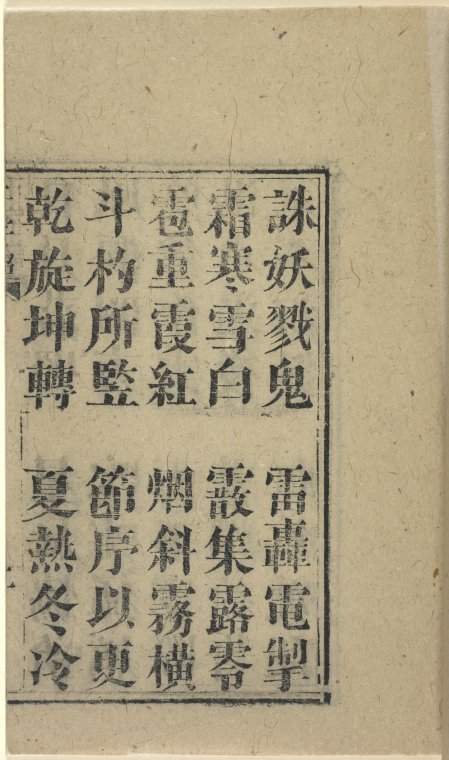 誅妖戮鬼　雷轟電掣
霜寒雪白　霰集露零
雹重霞紅　烟斜霧橫
斗杓所監　節序以更
乾旋坤轉　夏熱冬冷